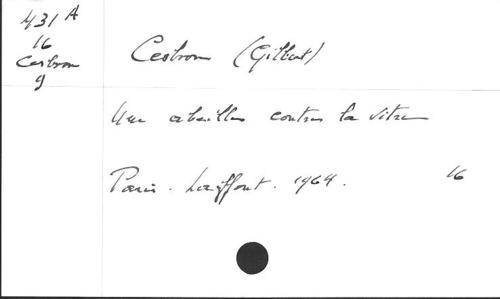 431 A
16
Cesbron
g
Cesbron (Gilbert)
Une abeille contre la vitre
Paris. Laffont. 1964. 16